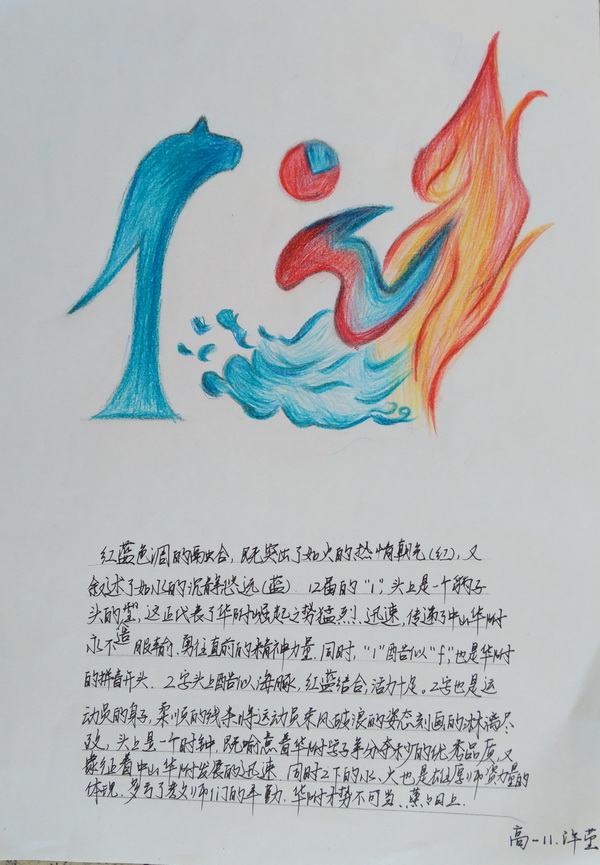 红蓝色调的融合，既突出了如火的热情朝气(红)，又
叙述了如水的沉静悠远(蓝)．12届的“1”，头上是一个豹子
头的型，这正代表了华附崛起之势猛烈．迅速，传递了中山华附
永不言服输，勇往直前的精神力量．同时，“1”酷似“f”，也是华附
的拼音开头．2字头上酷似海豚，红蓝结合，活力十足。2字也是运
动员的身子，柔顺的线条将运动员乘风破浪的姿态刻画的淋漓尽
致，头上是一个时钟，既喻意着华附学子争分夺秒的优秀品质，又
象征着中山华附发展的迅速．同时2下的水、火也是雄厚师资力量的
体现，多亏了老师们的辛勤，华附才势不可当、蒸蒸日上．
高一11．许莹